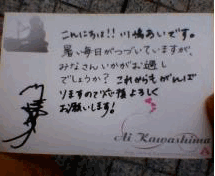 こんにちは!! 川嶋あいです。
暑い毎日がつづいていますが、
みなさんいかがお過し
でしょうか? これからもがんば
りますので応援よろしく
お願いします!
Ai Kawashima